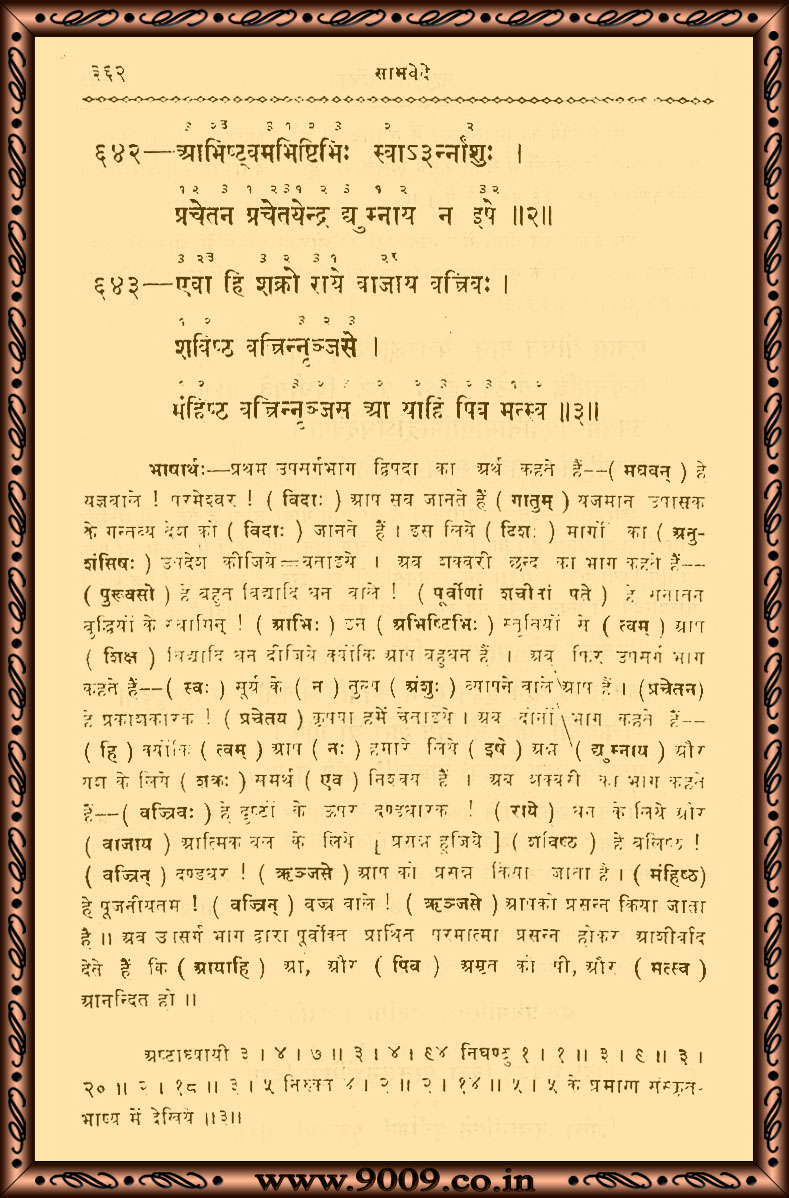 ३६२ सामवेदे
३ २३ ३ १ २ ३ २ २
६४२—आभिष्ट्वमभिष्टिभिः स्वाऽ३र्न्नांशुः ।
१ २ ३ १ २३१ २ ३ १ २ ३२
प्रचेतन प्रचेतयेन्द्र द्युम्नाय न इषे ॥२॥
३ २३ ३ २ ३ १ २र
६४३—एवा हि शक्रो राये वाजाय वज्रिवः ।
१ २ ३ २ ३
शविष्ठ वज्रिन्नृञ्जसे ।
मंहिष्ठ वज्रिन्नृञ्जस आ याहि पिब मत्स्व ॥३॥
भाषार्थः—प्रथम उपसर्गभाग द्विपदा का अर्थ कहते हैं--( मघवन् ) हे
यज्ञवाले ! परमेश्वर ! ( विदाः ) आप सब जानते हैं ( गातुम् ) यजमान उपासक
के गन्तव्य देश को ( विदाः ) जानते हैं । इस लिये ( दिशः ) मार्गों का ( अनु-
शंसिषः ) उपदेश कीजिये=बताइये । अब शक्वरी छन्द का भाग कहते हैं--
( पुरूवसो ) हे बहुत विद्यादि धन वाले ! ( पूर्वीणां शचीनां पते ) हे सनातन
बुद्धियों के स्वामिन् ! ( आभिः ) इन ( अभिष्टिभिः ) स्तुतियों से ( त्वम् ) आप
( शिक्ष ) विद्यादि धन दीजिये क्योंकि आप बहुधन हैं । अब फिर उपसर्ग भाग
कहते हैं--( स्वः ) सूर्य के ( न ) तुल्य ( अंशुः ) व्यापने वाले आप हैं । (प्रचेतन)
हे प्रकाशकारक ! ( प्रचेतय ) कृपया हमें चेताइये । अब दोनों भाग कहते हैं--
( हि ) क्योंकि ( त्वम् ) आप ( नः ) हमारे लिये ( इषे ) अन्न ( द्युम्नाय ) और
यश के लिये ( शक्रः ) समर्थ ( एव ) निश्चय हैं । अब शक्वरी का भाग कहते
हैं--( वज्रिवः ) हे दुष्टों के ऊपर दण्डधारक ! ( राये ) धन के लिये और
( वाजाय ) आत्मिक बल के लिये [ प्रसन्न हूजिये ] ( शविष्ठ ) हे बलिष्ठ !
( वज्रिन् ) दण्डधर ! ( ऋञ्जसे ) आप को प्रसन्न किया जाता है । ( मंहिष्ठ)
हे पूजनीयतम ! ( वज्रिन् ) वज्र वाले ! ( ऋञ्जसे ) आपको प्रसन्न किया जाता
है ॥ अब उपसर्ग भाग द्वारा पूर्वोक्त प्रार्थित परमात्मा प्रसन्न होकर आशीर्वाद
देते हैं कि ( आयाहि ) आ, और ( पिब ) अमृत को पी, और ( मत्स्व )
आनन्दित हो ॥
अष्टाध्यायी ३ । ४ । ७ ॥ ३ । ४ । ९४ निघण्टु १ । १ ॥ ३ । ९ ॥ ३ ।
२० ॥ २ । १८ ॥ ३ । ५ निरुक्त ४ । २ ॥ २ । १४ ॥ ५ । ५ के प्रमाण संस्कृत-
भाष्य में देखिये ॥३॥
www.9009.co.in